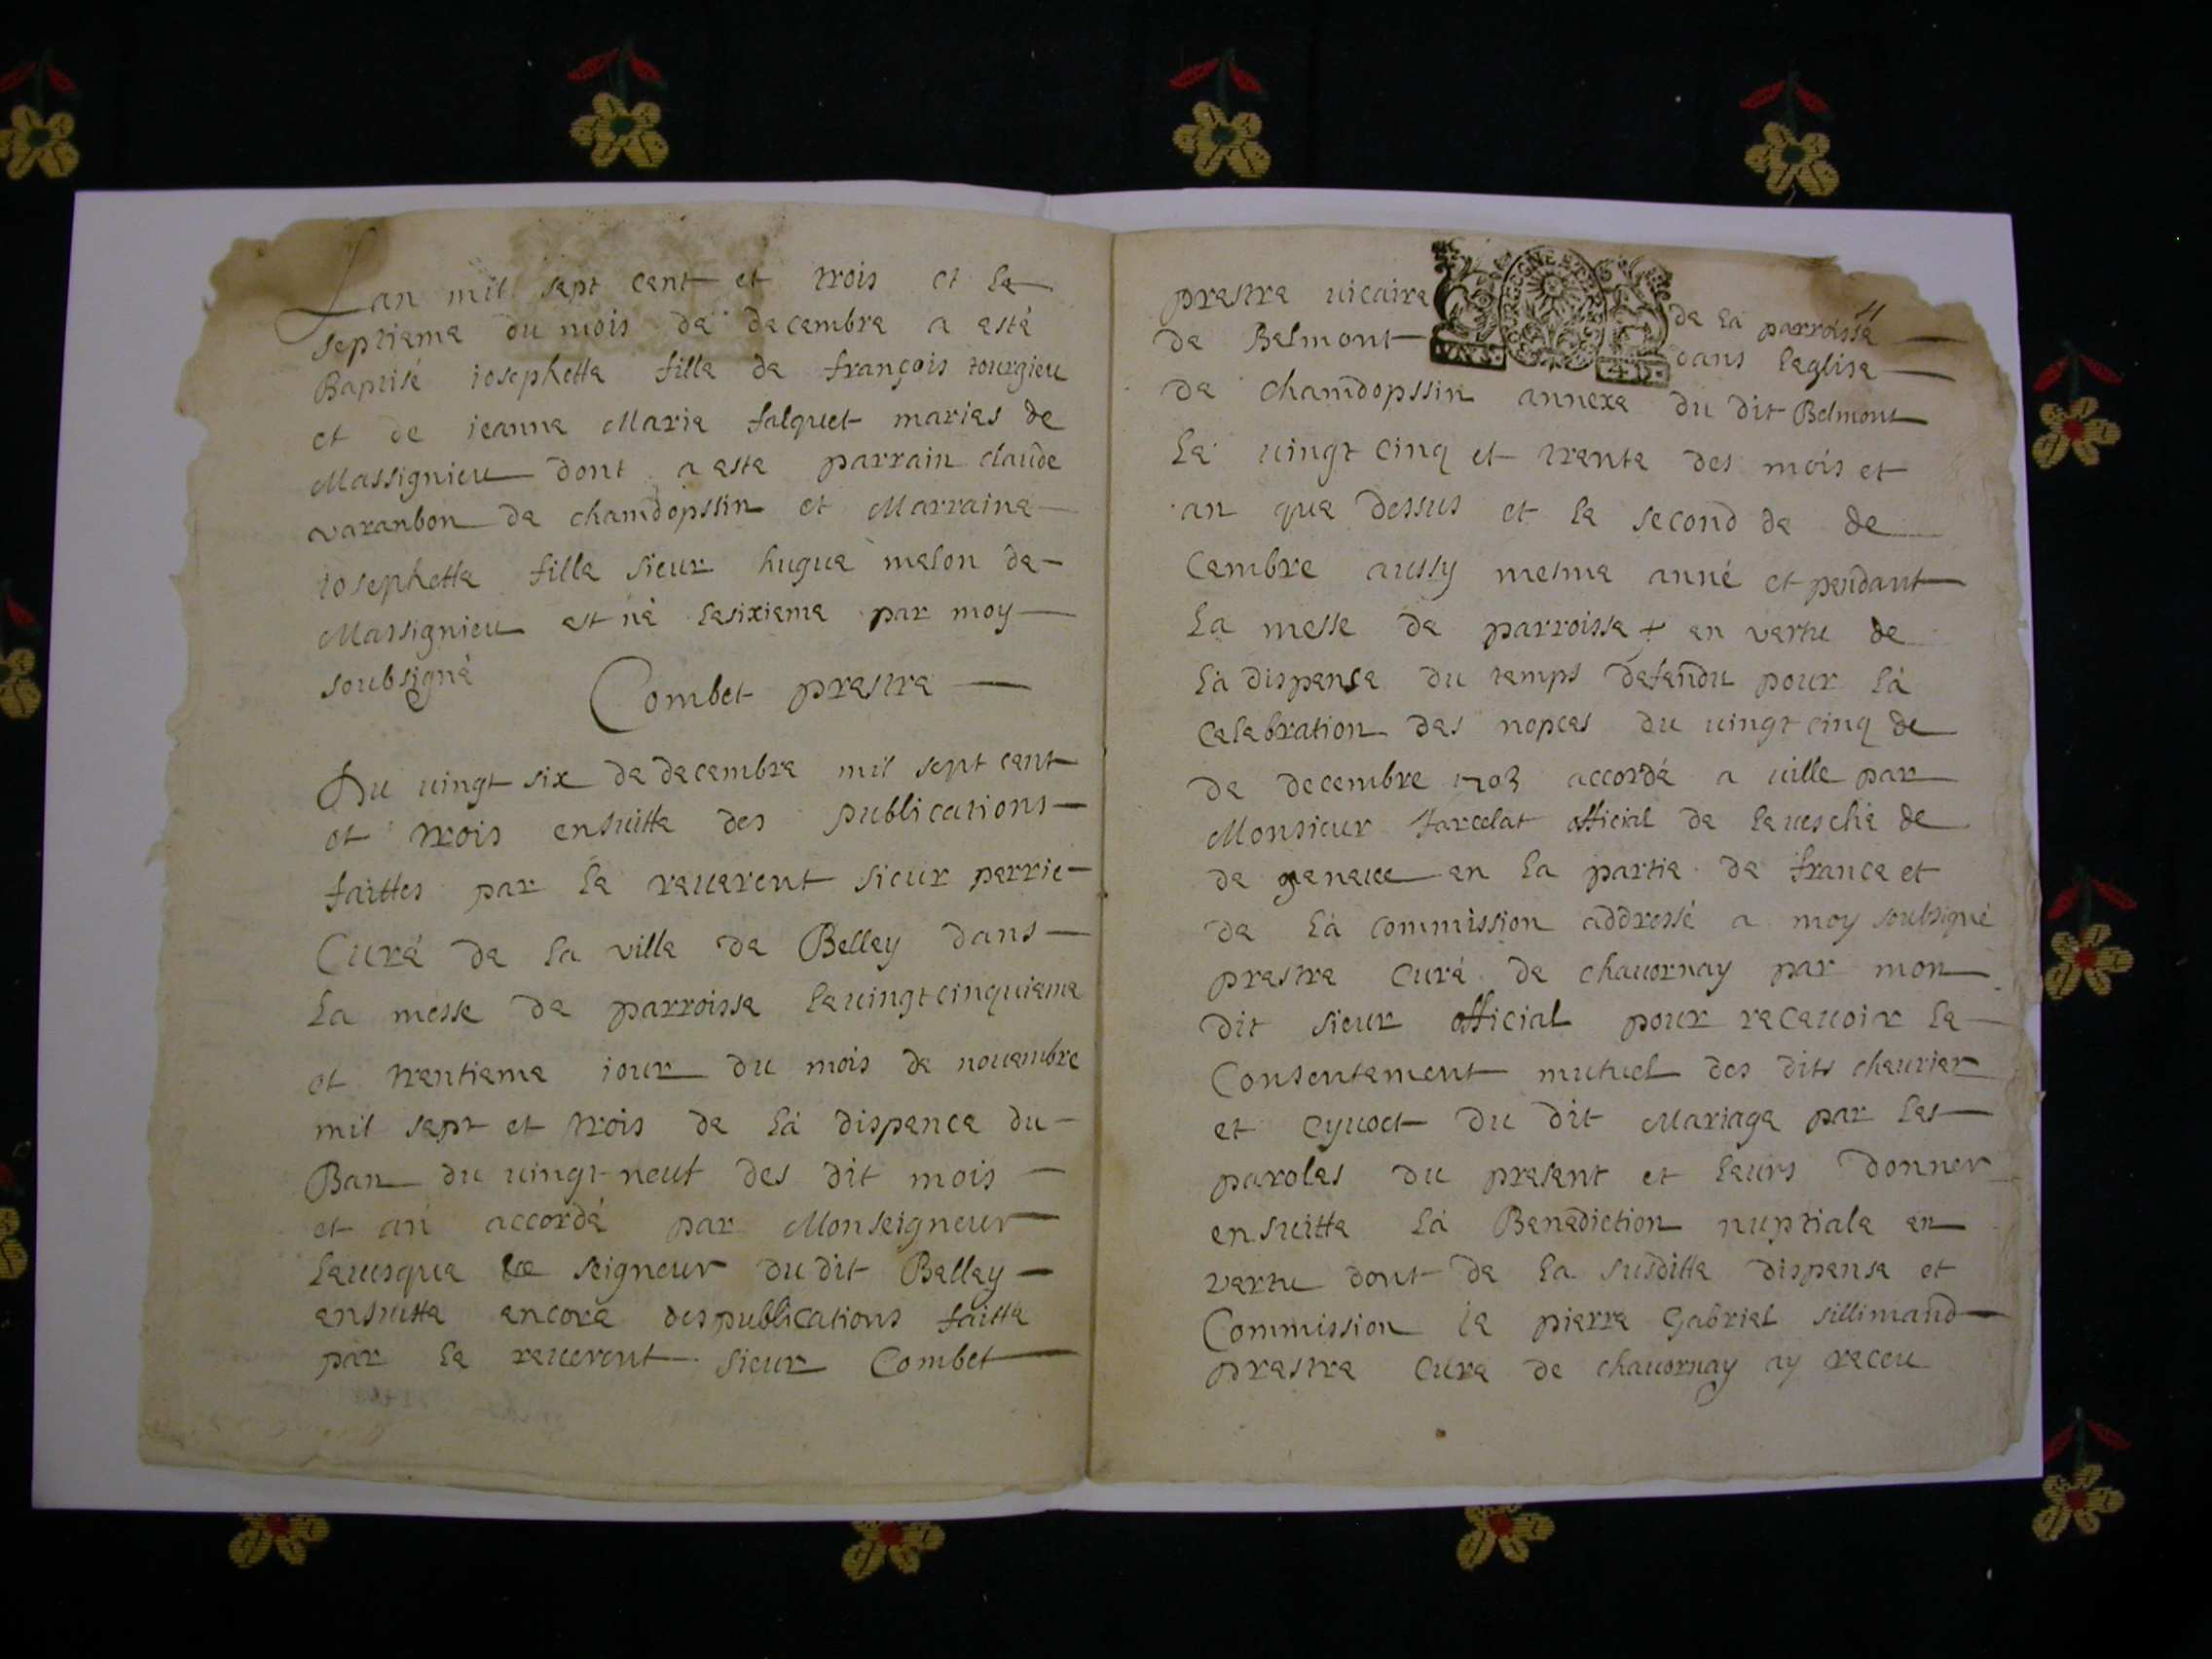 Lan mil sept cent et trois et le
septieme du mois de decembre a esté
Baptisé iosephette fille de françois tourgieu
et de ieanne Marie falquet maries de
Massignieu dont a este parrain claude
varanbon de chamdopssin et Marraine
iosephette fille sieur hugue melon de
Massignieu est né lesixieme par moy
soubsigné
Combet prestre
Du uingt six de decembre mil sept cent
et trois ensuitte des publications
faittes par le reuerent sieur perrie
Curé de la ville de Belley dans
la messe de parroisse leuingt cinquieme
et trentieme iour du mois de nouembre
mil sept et trois de la dispence du
Ban du uingt neuf des dit mois
et an accordé par Monseigneur
leuesque seigneur du dit Belley
ensuitte encore des publications faitte
par le reuerent sieur Combet
prestre uicaire de la parroisse
de Belmont dans leglise
de chamdopssin annexe du dit Belmont
le uingt cinq et trente des mois et
an que dessus et le second de de
Cembre aussy mesme anné et pendant
la messe de parroisse + en vertu de
la dispense du temps defendu pour la
celebration des nopces du uingt cinq de
de decembre 1703 accordé a uille par
Monsieur farcelat official de leuesché de
de geneue en la partie de france et
de la commission addressé a moy soubsigné
prestre curé de chauornay par mon
dit sieur official pour receuoir le
Consentement mutuel des dits cheurier
et Cyuoct du dit Mariage par les
paroles du present et leurs donner
ensuitte la Benediction nuptiale en
vertu dont de la susditte dispense et
Commission ie pierre Gabriel sillimand
prestre curé de chauornay ay receu